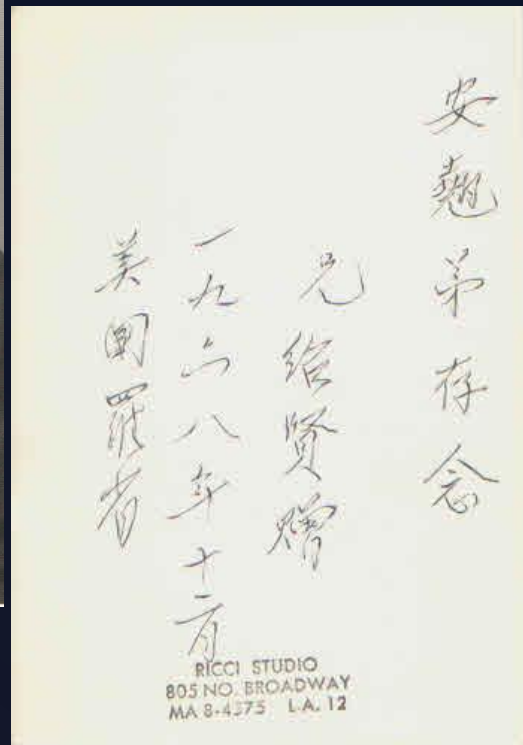 安翹弟存念
兄绍贤赠
一九六八年十二月
美国羅省
RICCI STUDIO
805 NO. BROADWAY
MA 8-4375 L.A. 12